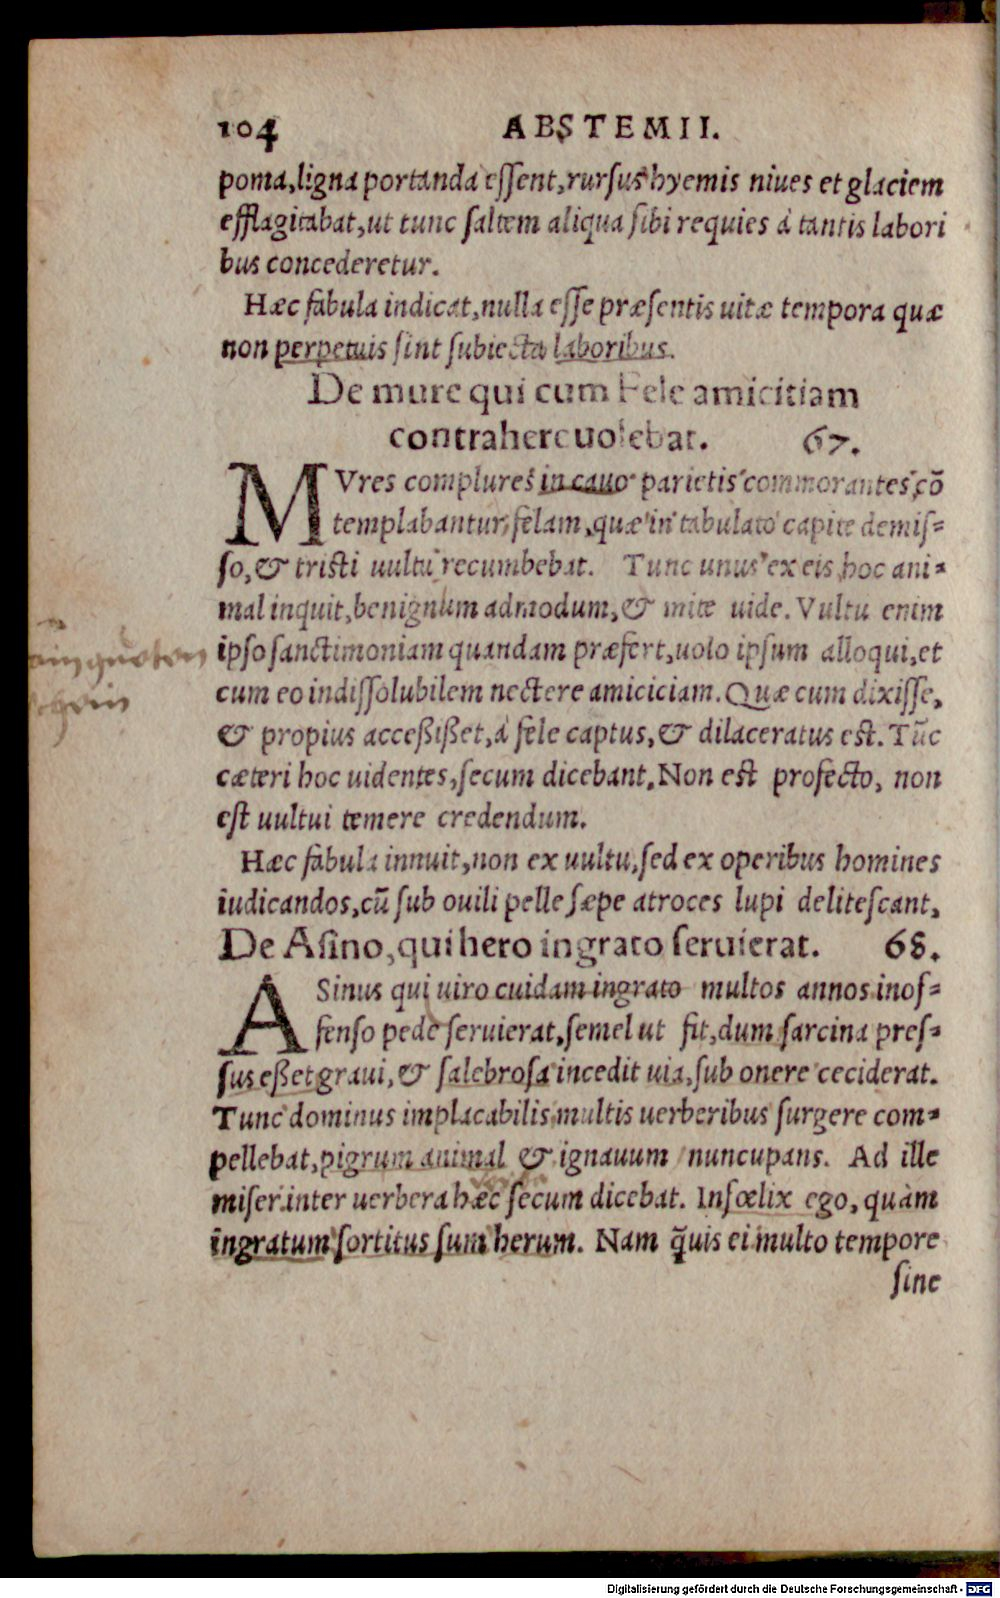 104 ABSTEMII.
poma,ligna portanda eſſent,rurſus hyemis niues et glaciem
efflagitabat,ut tunc ſaltem aliqua ſibi requies à tantis labori
bus concederetur.
Hæc fabula indicat,nulla eſſe præſentis uitæ tempora quæ
non perpetuis ſint ſubiecta laboribus.
De mure qui cum Fele amicitiam
contrahere uolebat. 67.
MVres complures in cauo parietis commorantes,cō
templabantur felam,quæ in tabulato capite demiſ=
ſo,& triſti uultu recumbebat. Tunc unus ex eis hoc ani=
mal inquit,benignum admodum,& mite uide. Vultu enim
ipſo ſanctimoniam quandam præfert,uolo ipſum alloqui,et
cum eo indiſſolubilem nectere amiciciam. Quæ cum dixiſſe,
& propius acceßißet,à fele captus,& dilaceratus eſt. Tūc
cæteri hoc uidentes,ſecum dicebant. Non eſt profecto, non
eſt uultui temere credendum.
Hæc fabula innuit,non ex uultu,ſed ex operibus homines
iudicandos,cū ſub ouili pelle ſæpe atroces lupi deliteſcant,
De Aſino,qui hero ingrato ſeruierat. 68.
ASinus qui uiro cuidam ingrato multos annos inoſ=
fenſo pede ſeruierat,ſemel ut fit,dum ſarcina preſ=
ſus eßet graui,& ſalebroſa incedit uia,ſub onere ceciderat.
Tunc dominus implacabilis multis uerberibus ſurgere com=
pellebat,pigrum animal & ignauum nuncupans. Ad ille
miſer inter uerbera hæc ſecum dicebat. Inſœlix ego, quàm
ingratum ſortitus ſum herum. Nam q̃uis ei multo tempore
ſine
Digitalisierung gefördert durch die Deutsche Forschungsgemeinschaft - DFG